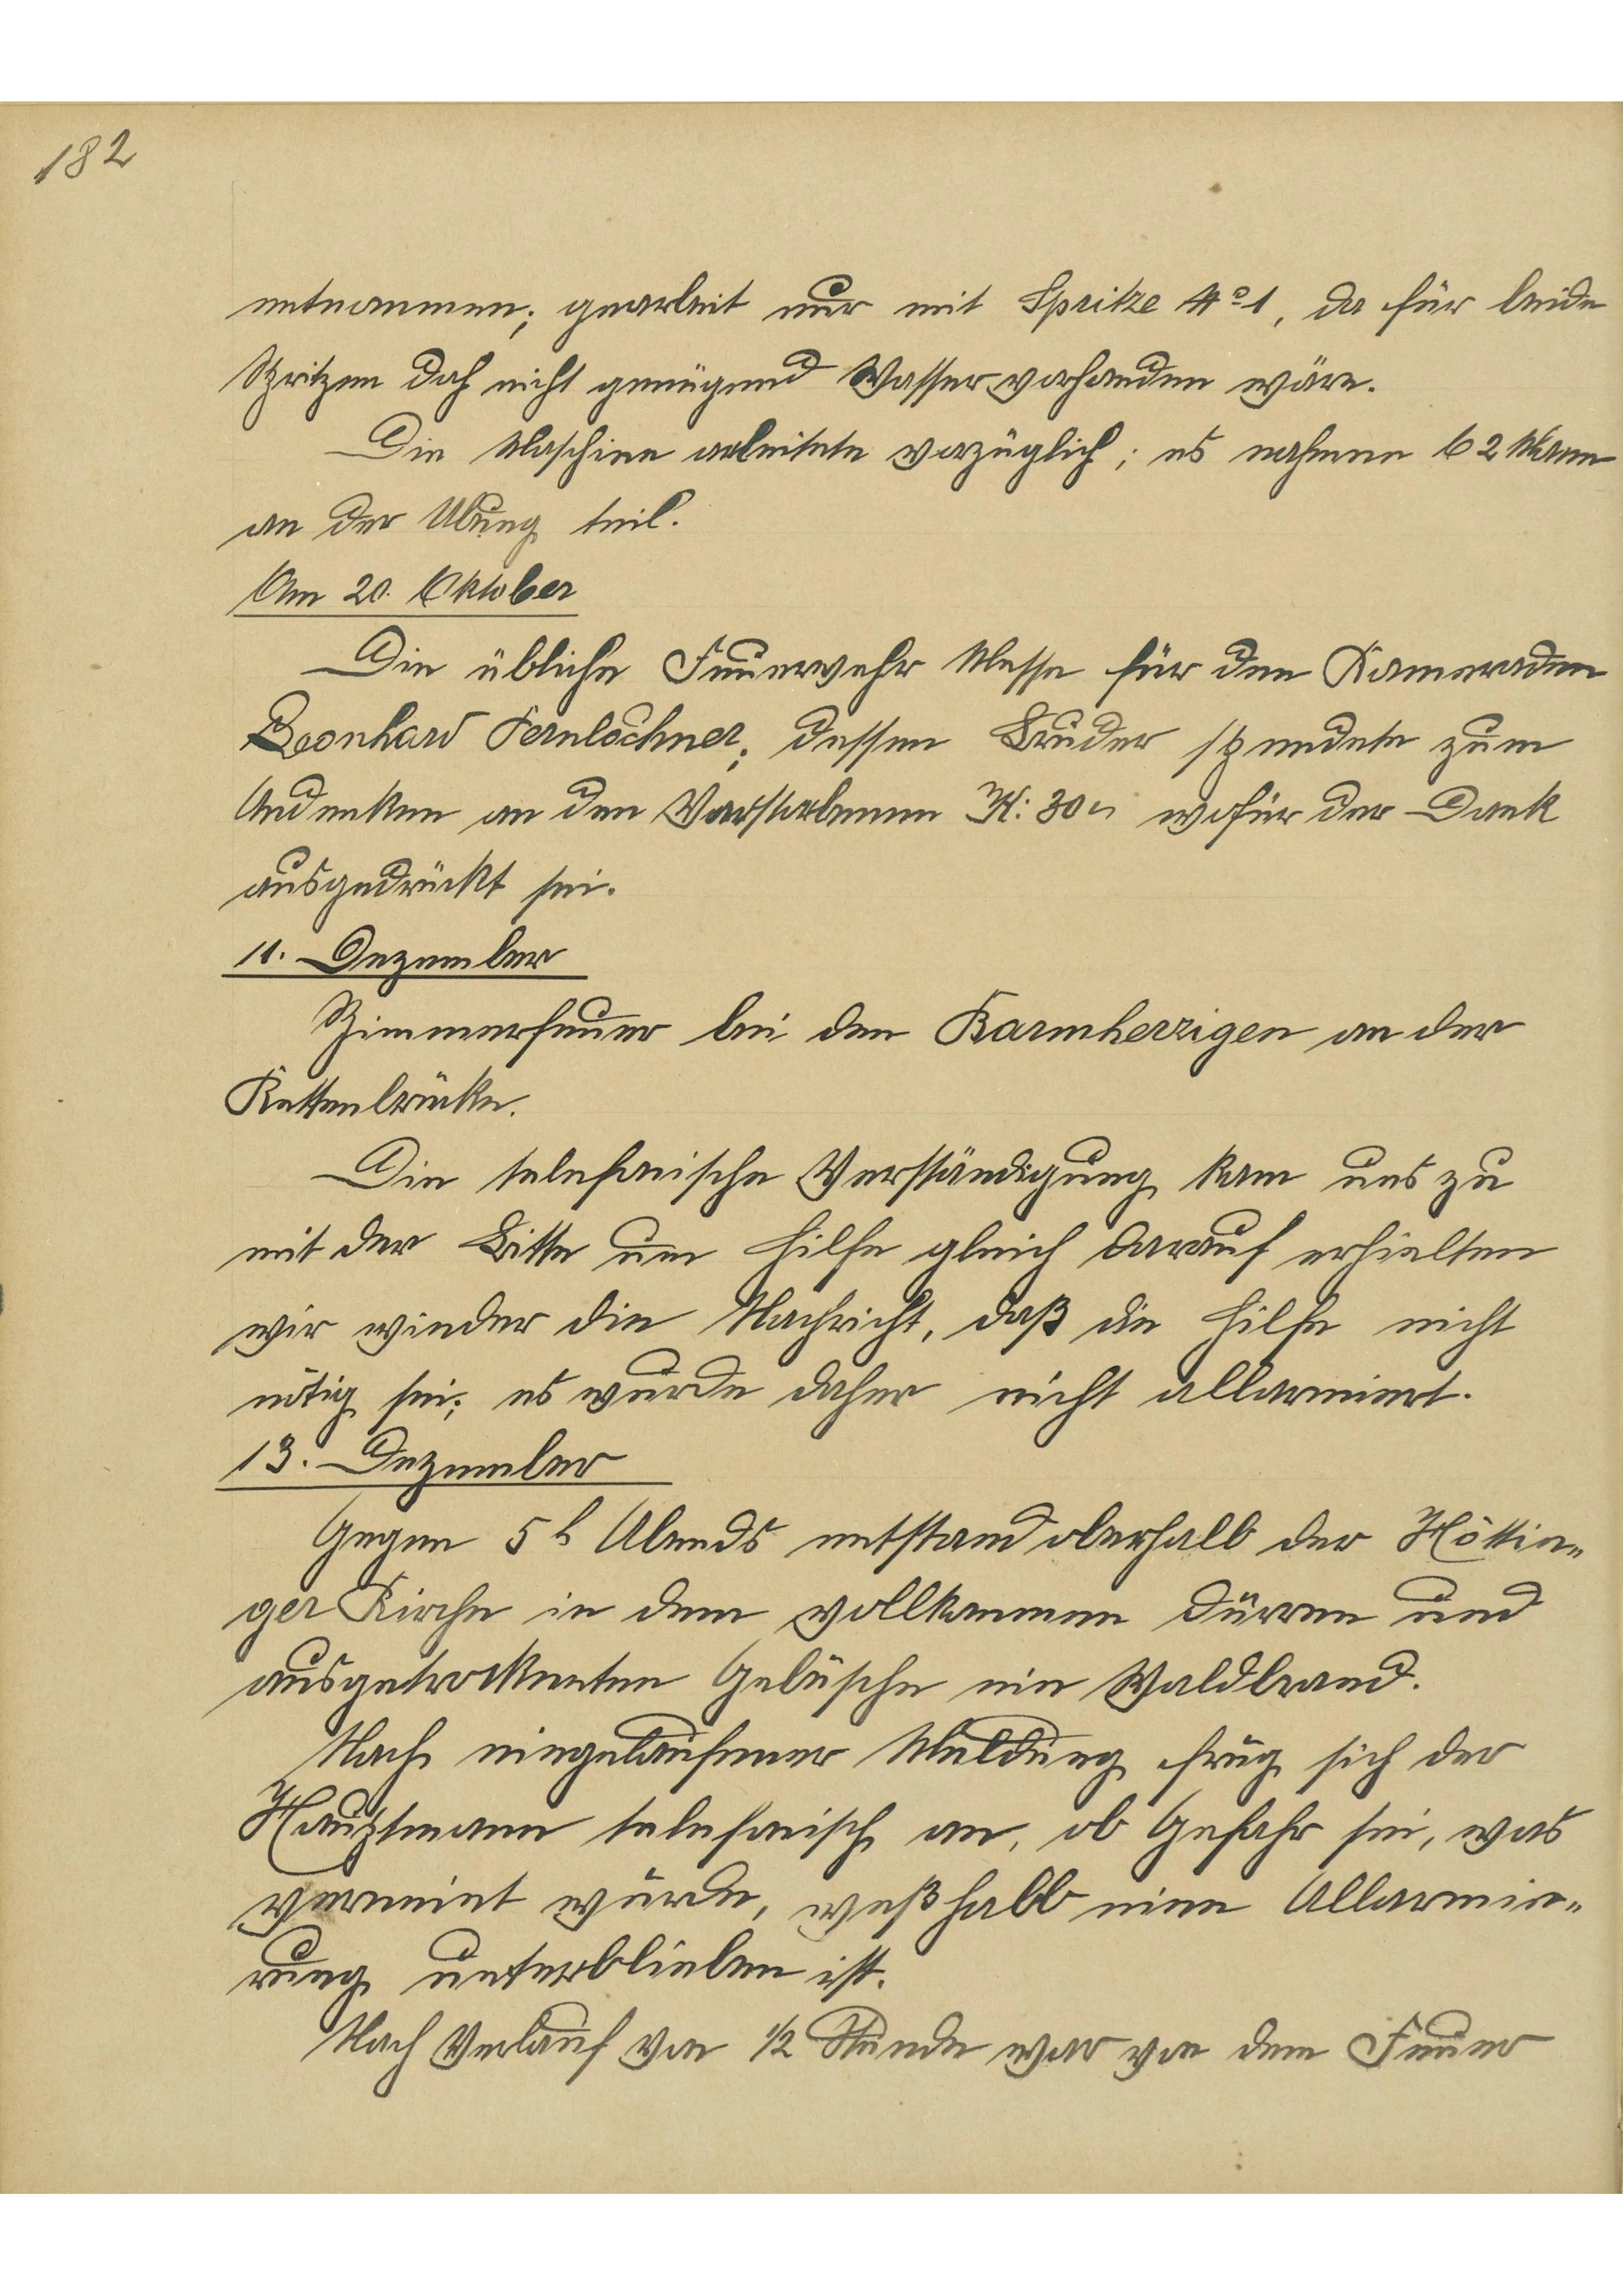 182
entnommen; gearbeit nur mit Spritze No 1, da für beide
Spritzen doch nicht genügend Wasser vorhanden wäre.
Die Maschine arbeitete vorzüglich; es nahmen 62 Mann
an der Übung teil.
Am 20. Oktober
Die übliche Feuerwehr Messe für den Kameraden
Leonhard Fernlochner; dessen Bruder spendete zum
Andenken an den Verstorbenen K: 30 wofür der Dank
ausgedrückt sei.
11. Dezember
Zimmerfeuer bei den Barmherzigen an der
Kettenbrücke.
Die telefonische Verständigung kam uns zu
mit der Bitte um Hilfe gleich darauf erhielten
wir wieder die Nachricht, daß die Hilfe nicht
nötig sei; es wurde daher nicht allarmiert.
13. Dezember
Gegen 5 h Abends entstand oberhalb der Höttin„
ger Kirche in dem vollkommen dürren und
ausgetrockneten Gebüsche ein Waldbrand.
Nach eingelaufener Meldung frug sich der
Hauptmann telefonisch an, ob Gefahr sei, was
verneint wurde, weßhalb eine Allarmie„
rung unterblieben ist.
Nach Verlauf von 1/2 Stunde war von dem Feuer